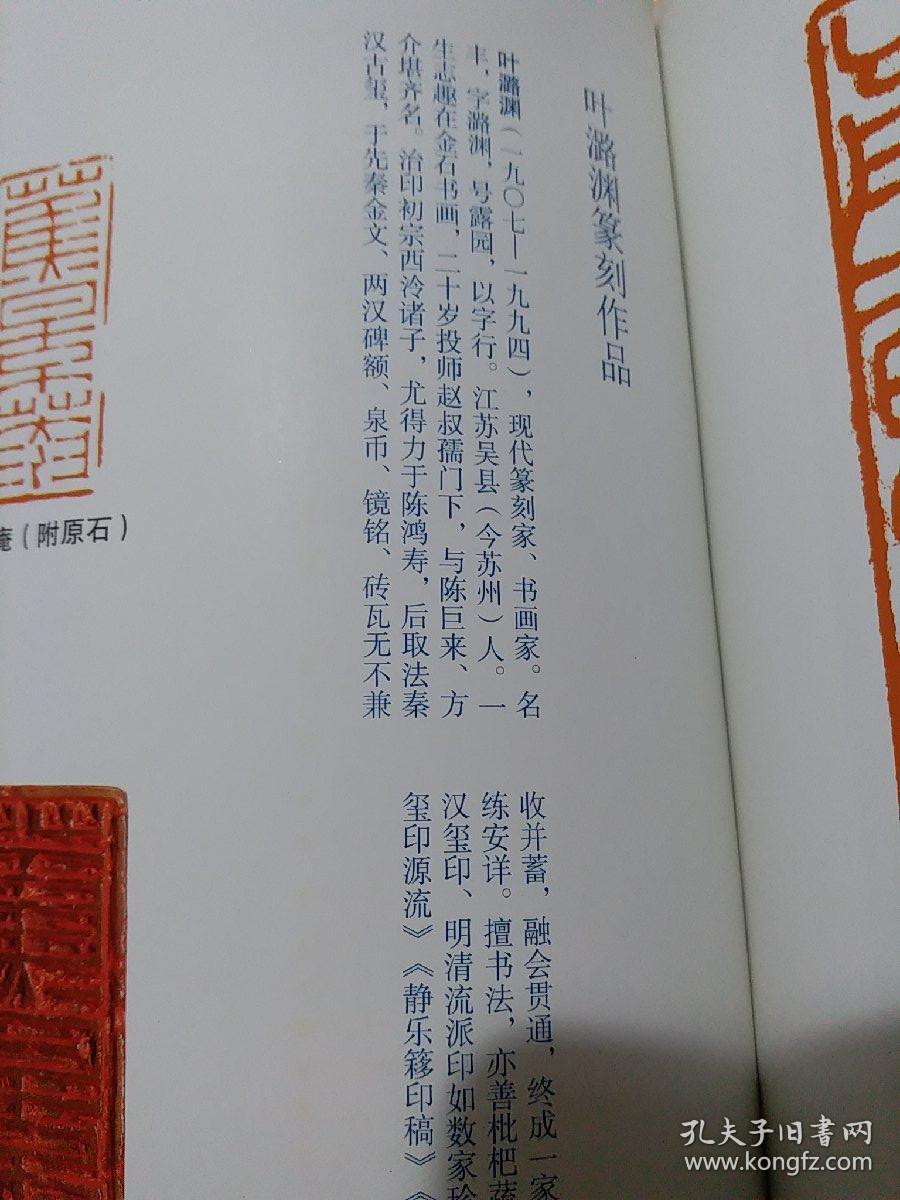 叶潞渊篆刻作品
叶潞渊（一九〇七—一九九四），现代篆刻家、书画家。名
丰，字潞渊，号露园，以字行。江苏吴县（今苏州）人。一
生志趣在金石书画，二十岁投师赵叔孺门下，与陈巨来、方
介堪齐名。治印初宗西泠诸子，尤得力于陈鸿寿，后取法秦
汉古玺，于先秦金文、两汉碑额、泉币、镜铭、砖瓦无不兼
收并蓄，融会贯通，终成一家
练安详。擅书法，亦善枇杷蔬
汉玺印、明清流派印如数家珍
玺印源流》《静乐簃印稿》《
庵（附原石）
孔夫子旧书网
www.kongfz.com